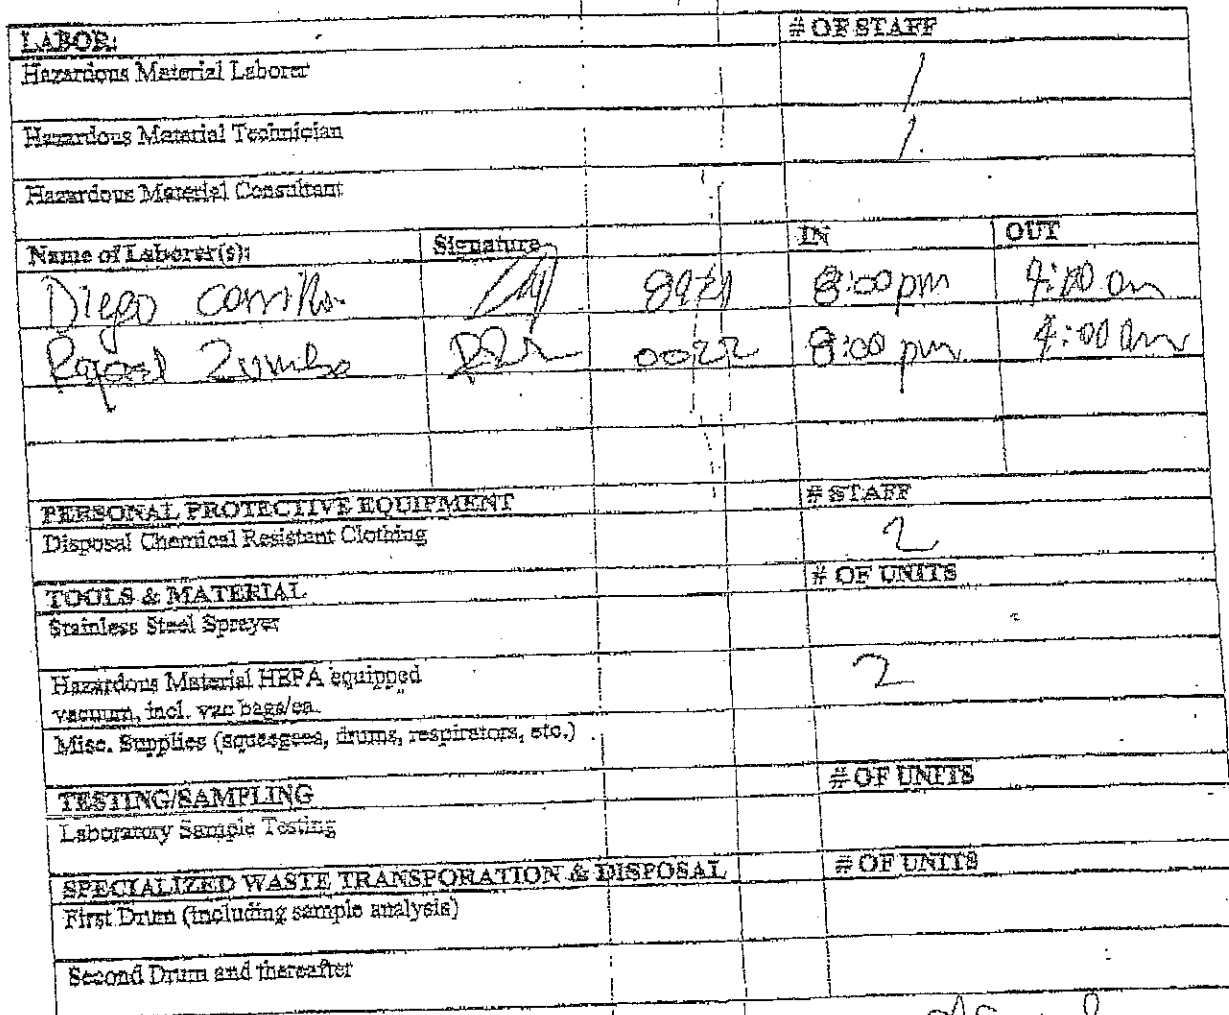 LABOR: # OF STAFF
Hazardous Material Laborer 1
Hazardous Material Technician 1
Hazardous Material Consultant
Name of Laborer(s): Signature IN OUT
Diego 8:00 pm 4:00 am
Zumba 0022 8:00 pm 4:00 am
PERSONAL PROTECTIVE EQUIPMENT # STAFF
Disposal Chemical Resistant Clothing 2
TOOLS & MATERIAL # OF UNITS
Stainless Steel Sprayer
Hazardous Material HEPA equipped 2
vacuum, incl. vac bags/ea.
Misc. Supplies (squeegees, drums, respirators, etc.)
TESTING/SAMPLING # OF UNITS
Laboratory Sample Testing
SPECIALIZED WASTE TRANSPORATION & DISPOSAL # OF UNITS
First Drum (including sample analysis)
Second Drum and thereafter